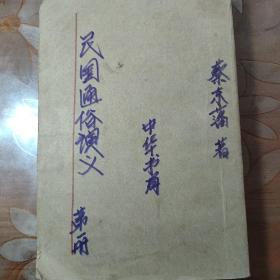 蔡东藩 著
民国通俗演义
中华书局
第一册